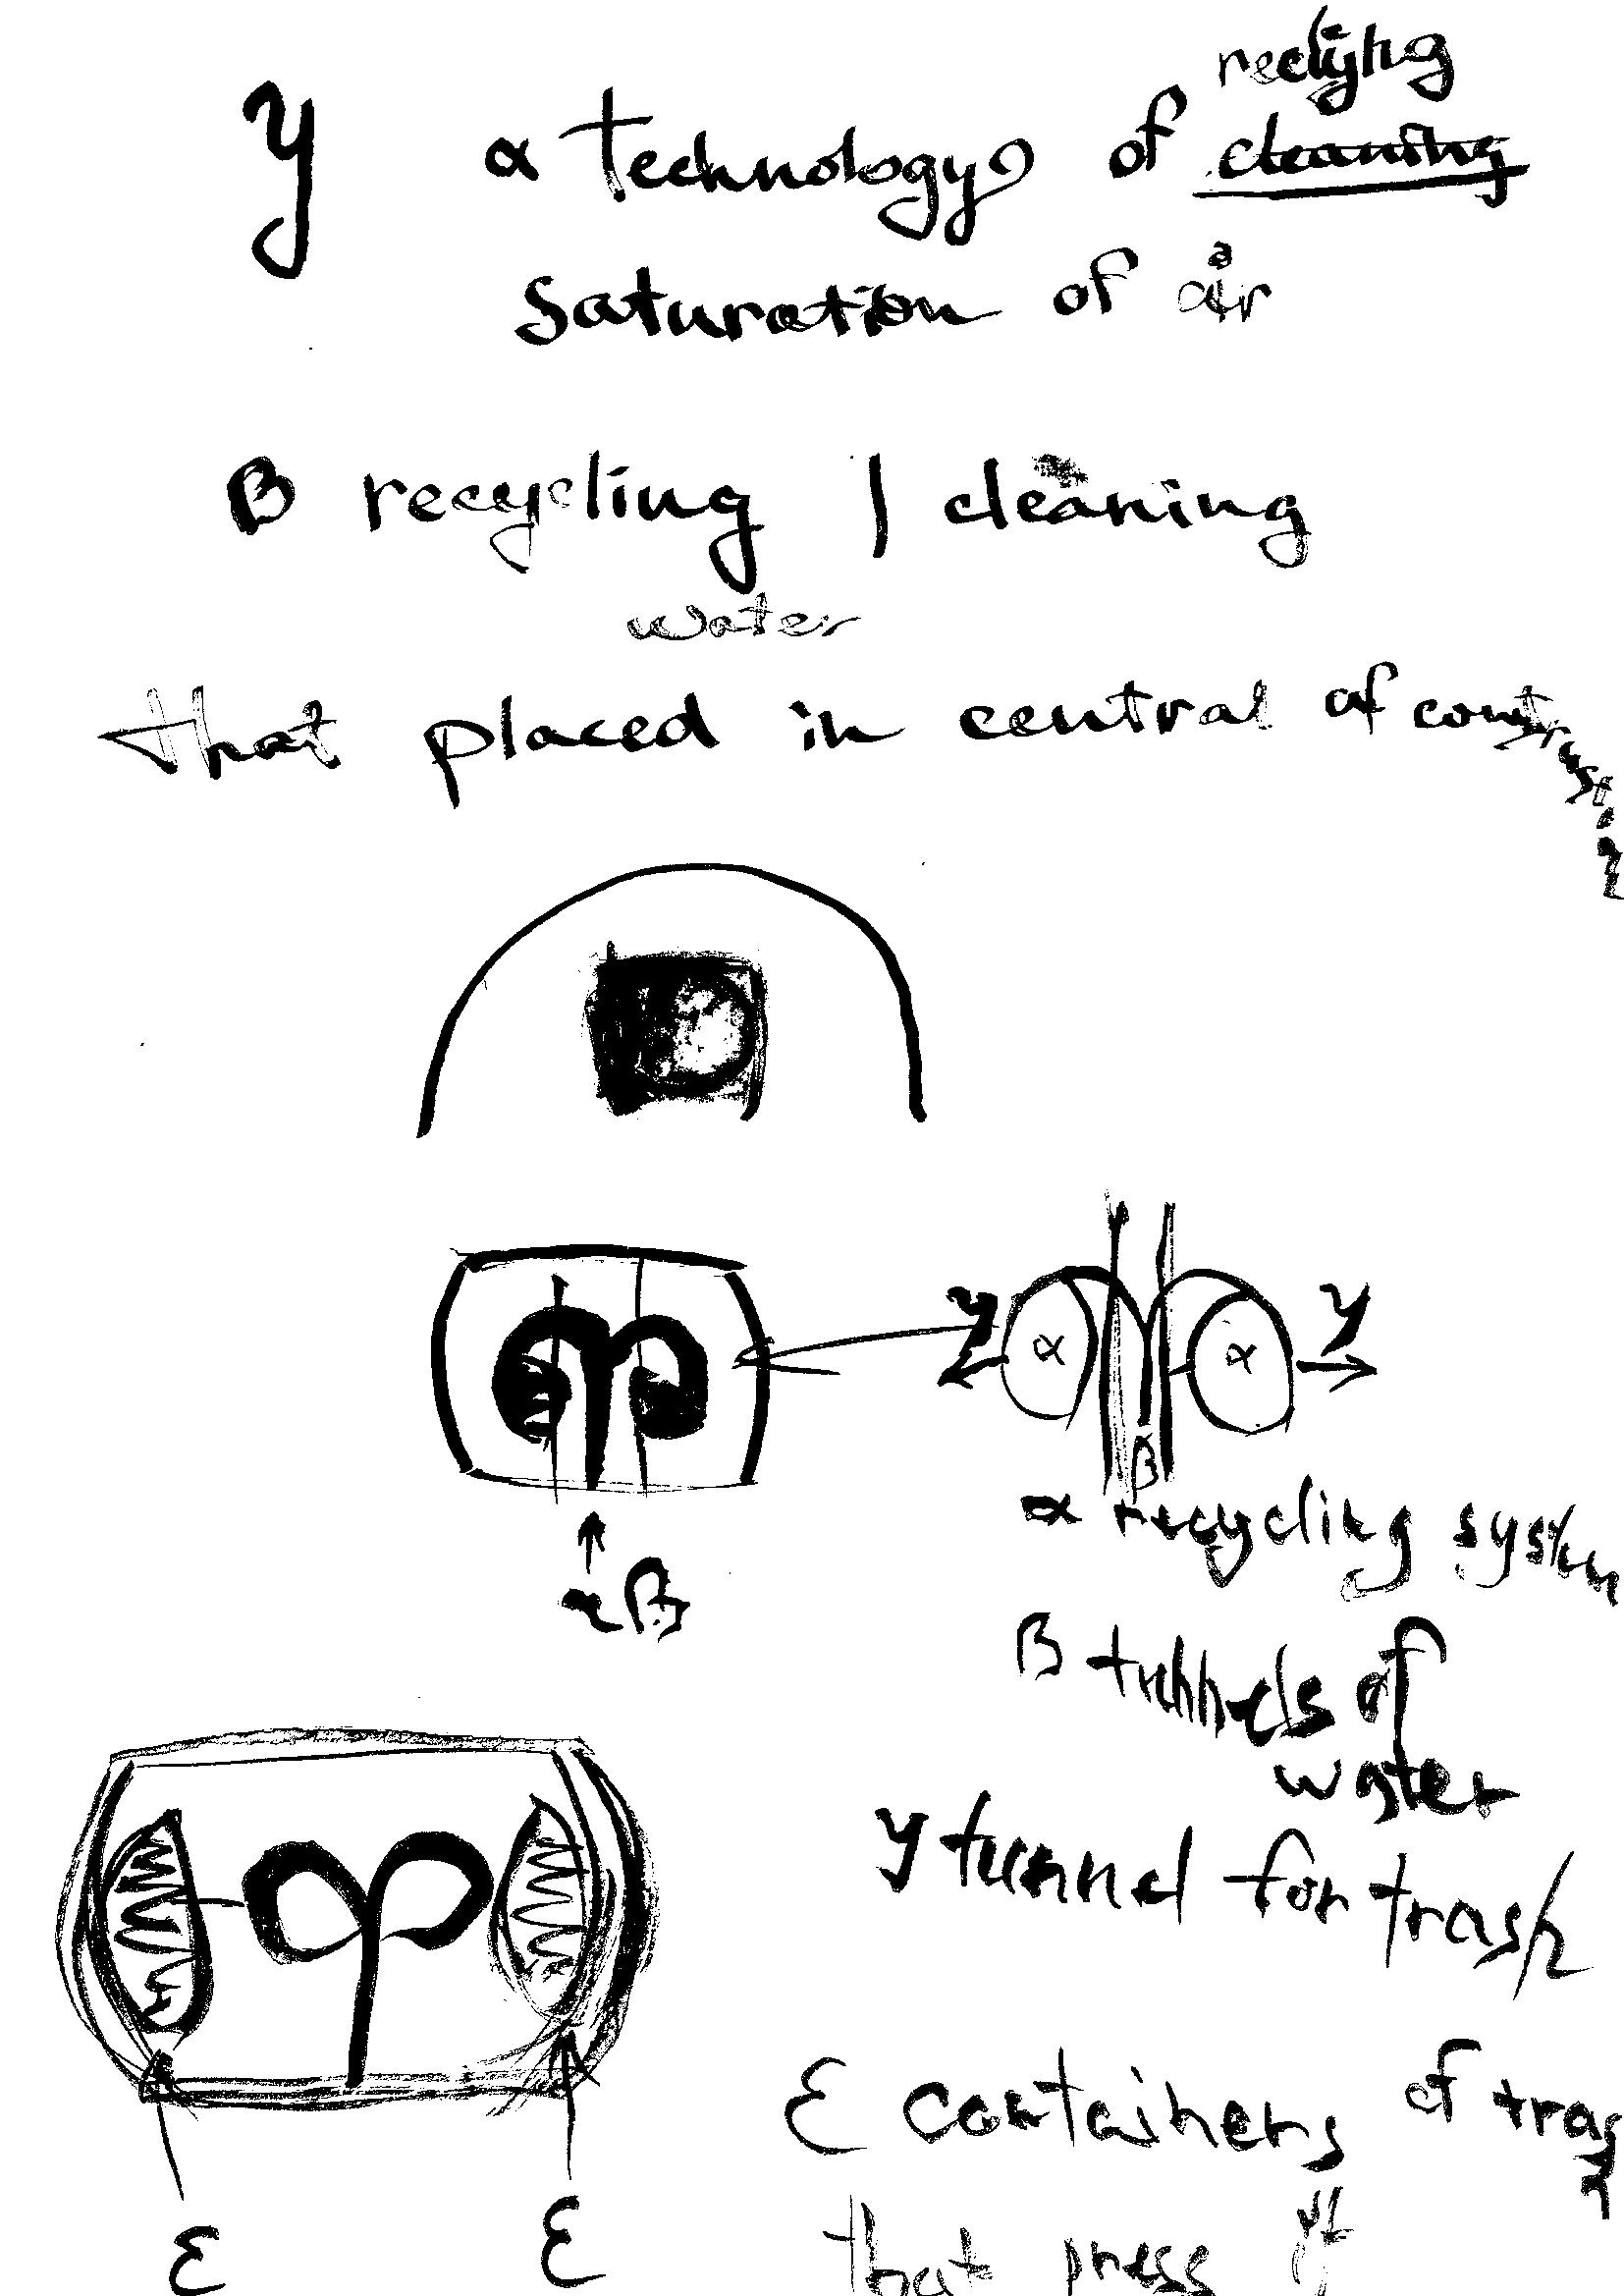 γ α technology of recycling cleaning
saturation of air
β recycling | cleaning
water
that placed in central of construction
γ γ
α α
β
α β
α recycling system
β tunnels of
water
γ tunnel for trash
ε containers of trash
that press it
ε ε